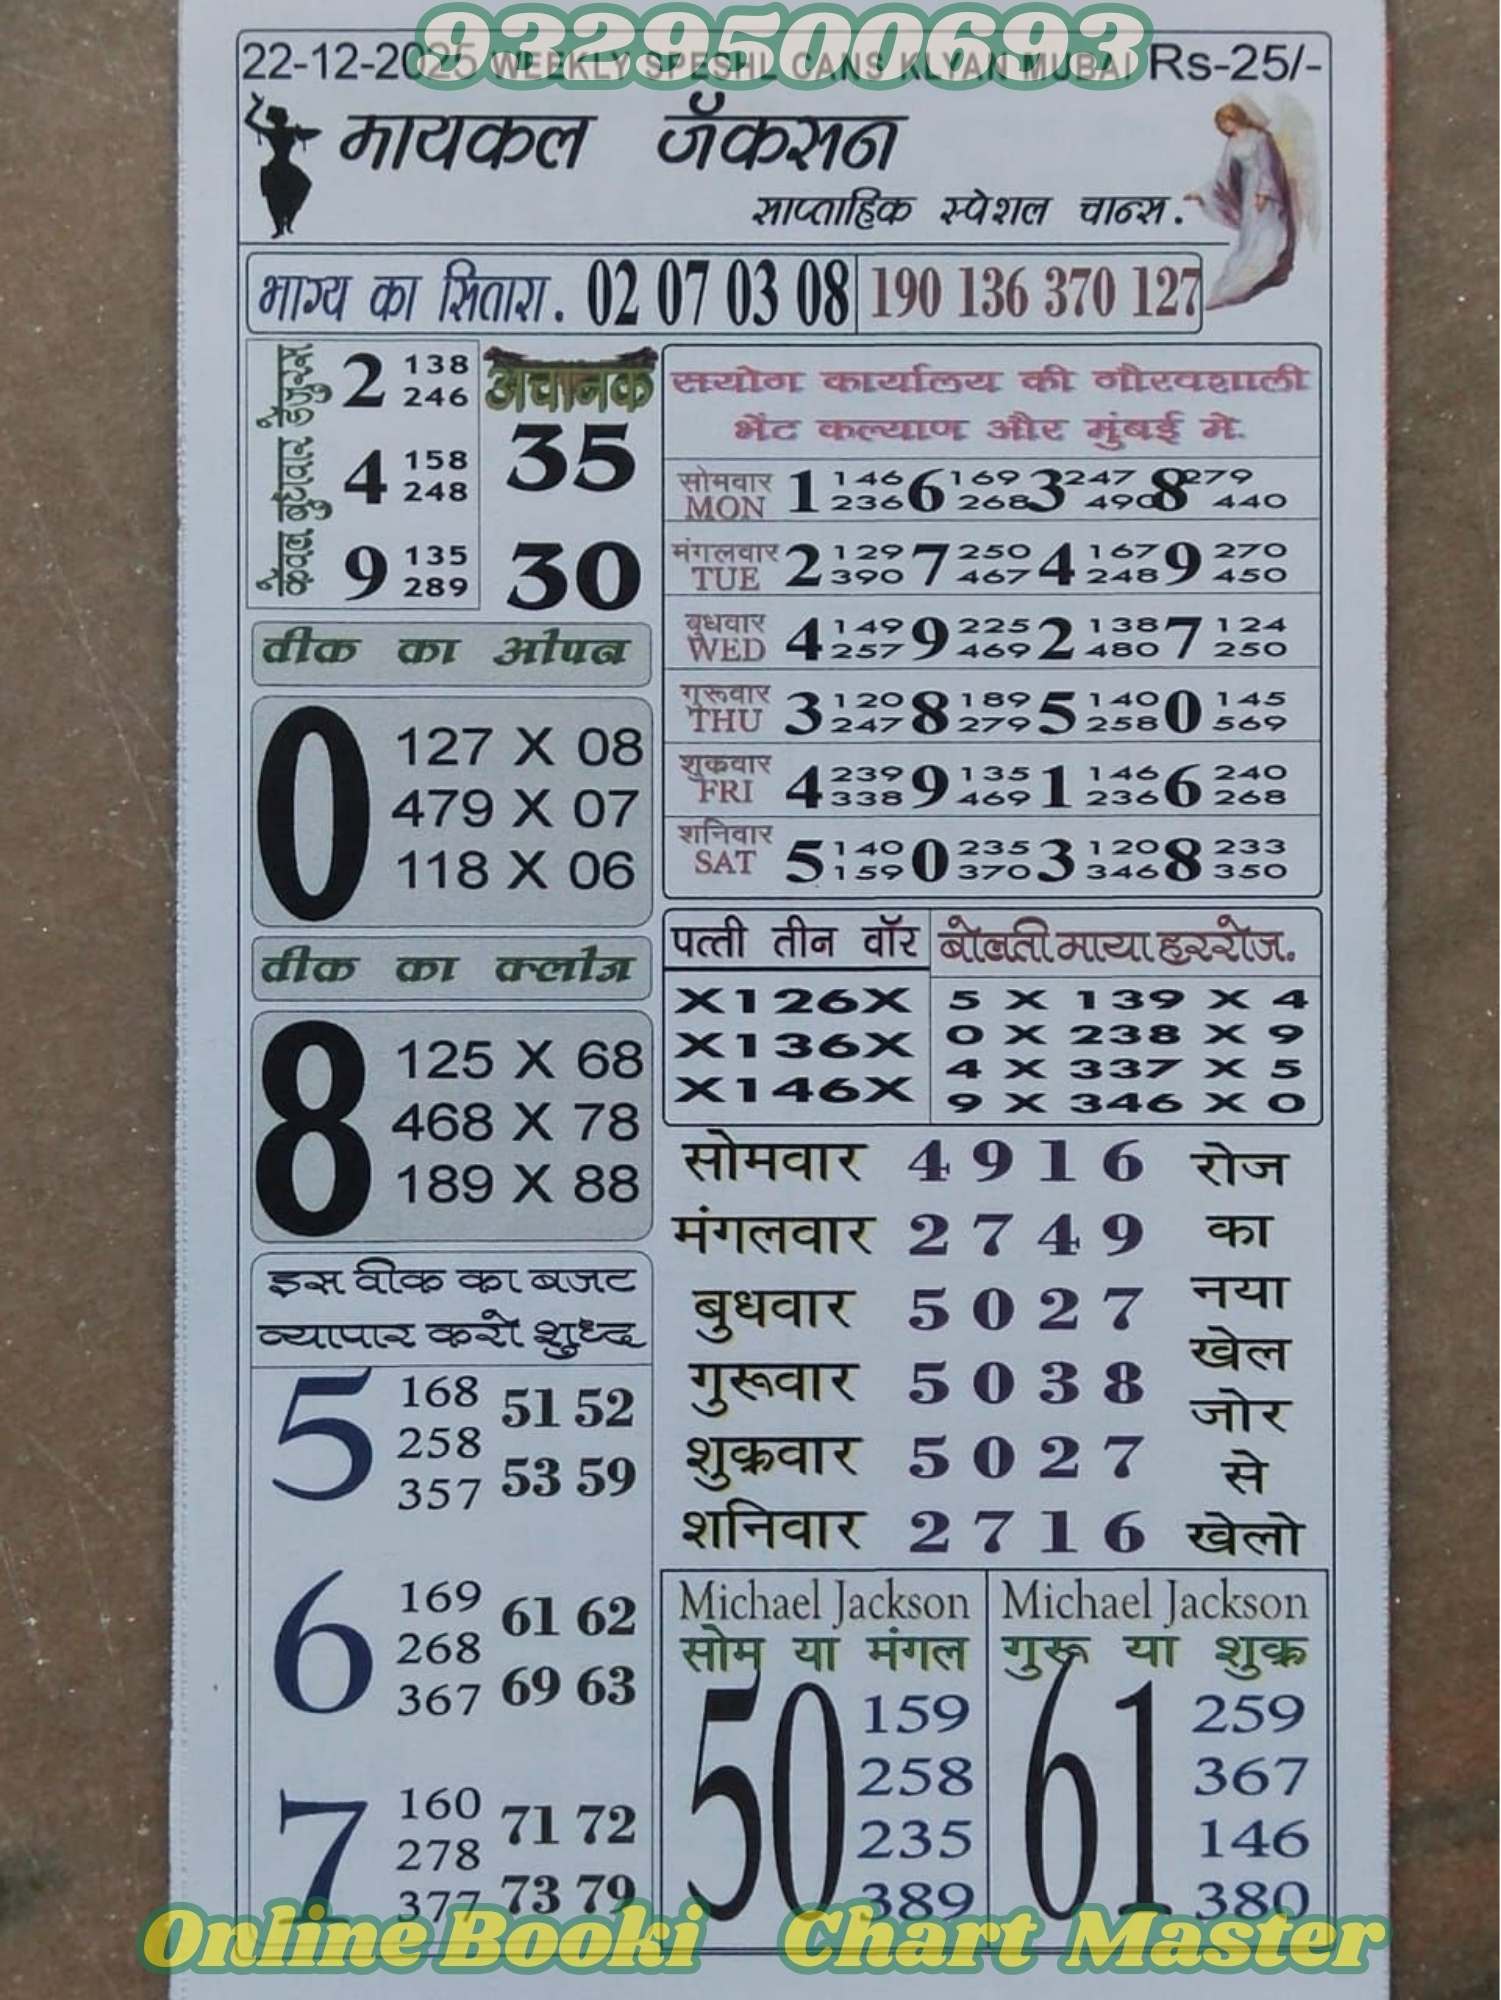 9329500693
22-12-2025 WEEKLY SPESHL CANS KLYAN MUBAI Rs-25/-
मायकल जॅकसन
साप्ताहिक स्पेशल चान्स.
भाग्य का सितारा. 02 07 03 08 190 136 370 127
2 138
246
बुधवार 4 158
248
केवल 9 135
289
अचानक
35
30
वीक का ओपन
0
127 X 08
479 X 07
118 X 06
वीक का क्लोज
8
125 X 68
468 X 78
189 X 88
इस वीक का बजट
व्यापार करो शुध्द
5
168 51 52
258
357 53 59
6
169 61 62
268
367 69 63
7
160 71 72
278
377 73 79
सयोग कार्यालय की गौरवशाली
भेंट कल्याण और मुंबई मे.
सोमवार 1 146 6 169 3 247 8 279
MON 236 268 490 440
मंगलवार 2 129 7 250 4 167 9 270
TUE 390 467 248 450
बुधवार 4 149 9 225 2 138 7 124
WED 257 469 480 250
गुरूवार 3 120 8 189 5 140 0 145
THU 247 279 258 569
शुकवार 4 239 9 135 1 146 6 240
FRI 338 469 236 268
शनिवार 5 140 0 235 3 120 8 233
SAT 159 370 346 350
पत्ती तीन वॉर
X126X
X136X
X146X
बोलती माया हररोज.
5 X 139 X 4
0 X 238 X 9
4 X 337 X 5
9 X 346 X 0
सोमवार 4 9 1 6
मंगलवार 2 7 4 9
बुधवार 5 0 2 7
गुरूवार 5 0 3 8
शुक्रवार 5 0 2 7
शनिवार 2 7 1 6
रोज
का
नया
खेल
जोर
से
खेलो
Michael Jackson
सोम या मंगल
50
159
258
235
389
Michael Jackson
गुरू या शुक्र
61
259
367
146
380
Online Booki Chart Master